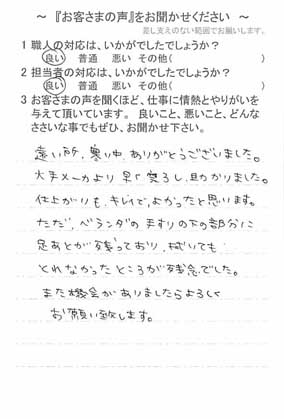 ～ 『お客さまの声』をお聞かせください ～
差し支えのない範囲でお願いします。
1 職人の対応は、いかがでしたでしょうか？
良い 普通 悪い その他( )
2 担当者の対応は、いかがでしたでしょうか？
良い 普通 悪い その他( )
3 お客さまの声を聞くほど、仕事に情熱とやりがいを
与えて頂いています。 良いこと、悪いこと、どんな
ささいな事でもぜひ、お聞かせ下さい。
遠い所、寒い中、ありがとうございました。
大手メーカより 早く 安ろし、助かりました。
仕上がりも、キレイで、よかったと思います。
ただ、ベランダの 手すりの下の部分に
足あとが 残っており、拭いても
とれなかった ところが残念でした。
また機会が ありましたらよろしく
お願い致します。